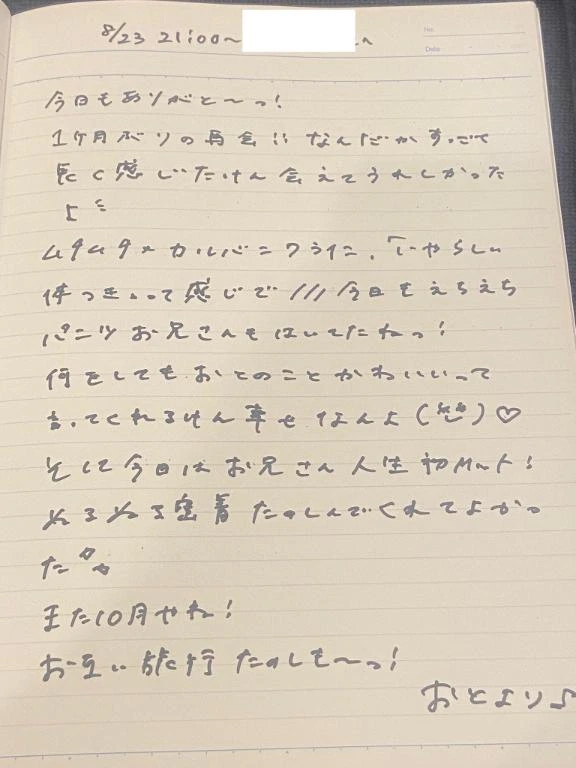 8/23 21:00〜
No.
Date
今日もありがと〜っ!
1ヶ月ぶりの再会!! なんだかすっごて
長く感じたけん会えてうれしかった
よ
ムチムチ×カルバンクライン、いやらしい
体つきって感じで///今日もえちえち
パンツお兄さんもはいてたねっ!
何をしてもおとのことかわいいって
言ってくれるけん幸せなんよ( )♡
そして今日はお兄さん人生初Mット!
ぬるぬる密着たのしんでくれてよかっ
た
また10月やね!
お互い旅行たのしも〜っ!
おとより♪